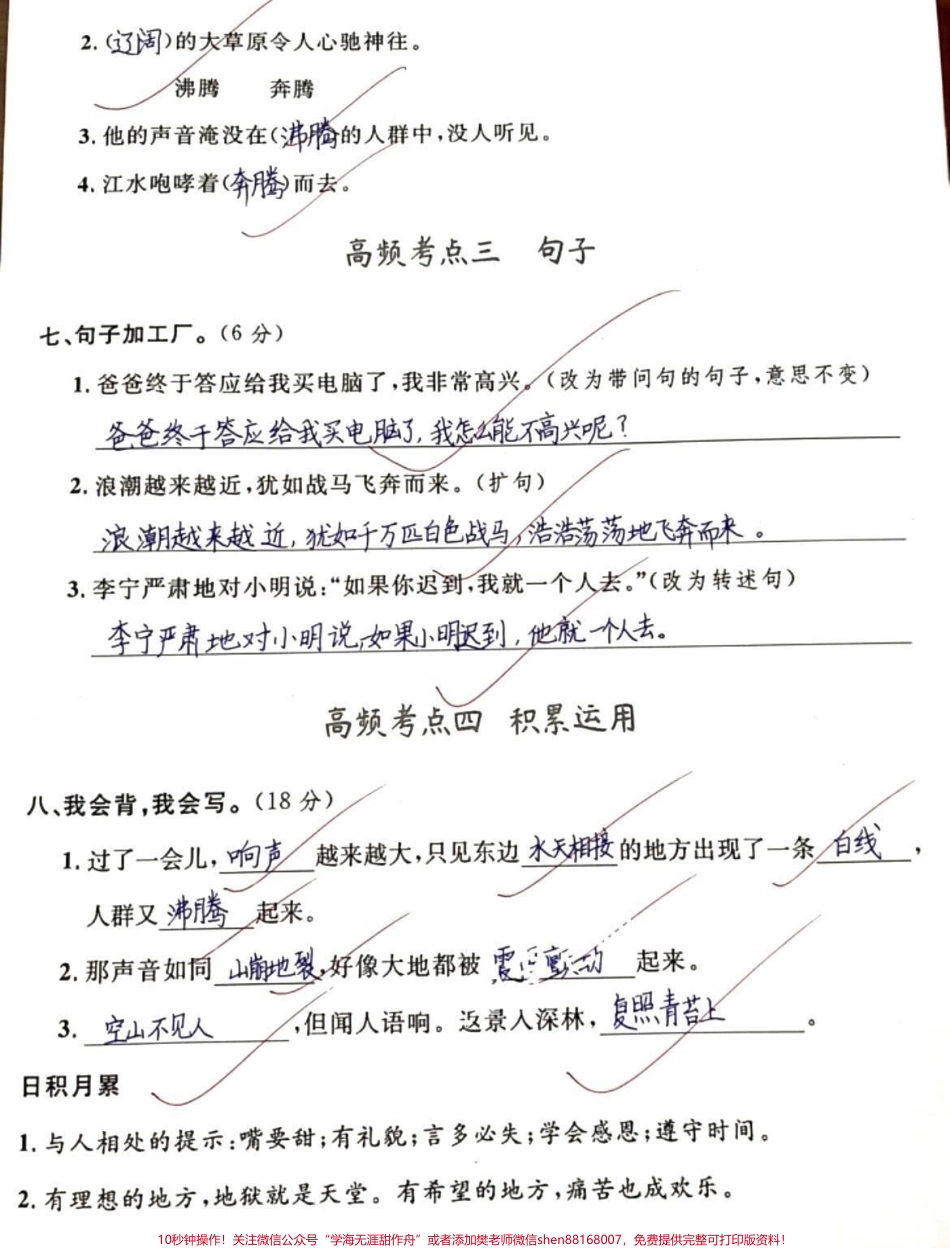 2.(辽阔)的大草原令人心驰神往。
沸腾 奔腾
3.他的声音淹没在(沸腾)的人群中,没人听见。
4.江水咆哮着(奔腾)而去。
高频考点三 句子
七、句子加工厂。(6分)
1.爸爸终于答应给我买电脑了,我非常高兴。(改为带问句的句子,意思不变)
爸爸终于答应给我买电脑了,我怎么能不高兴呢?
2.浪潮越来越近,犹如战马飞奔而来。(扩句)
浪潮越来越近,犹如千万匹白色战马,浩浩荡荡地飞奔而来。
3.李宁严肃地对小明说:“如果你迟到,我就一个人去。”(改为转述句)
李宁严肃地对小明说,如果小明迟到,他就一个人去。
高频考点四 积累运用
八、我会背,我会写。(18分)
1.过了一会儿,响声越来越大,只见东边水天相接的地方出现了一条白线,
人群又沸腾起来。
2.那声音如同山崩地裂,好像大地都被震得颤动起来。
3.空山不见人,但闻人语响。返景入深林,复照青苔上。
日积月累
1.与人相处的提示:嘴要甜;有礼貌;言多必失;学会感恩;遵守时间。
2.有理想的地方,地狱就是天堂。有希望的地方,痛苦也成欢乐。
10秒钟操作!关注微信公众号“学海无涯甜作舟”或者添加樊老师微信shen88168007,免费提供完整可打印版资料!